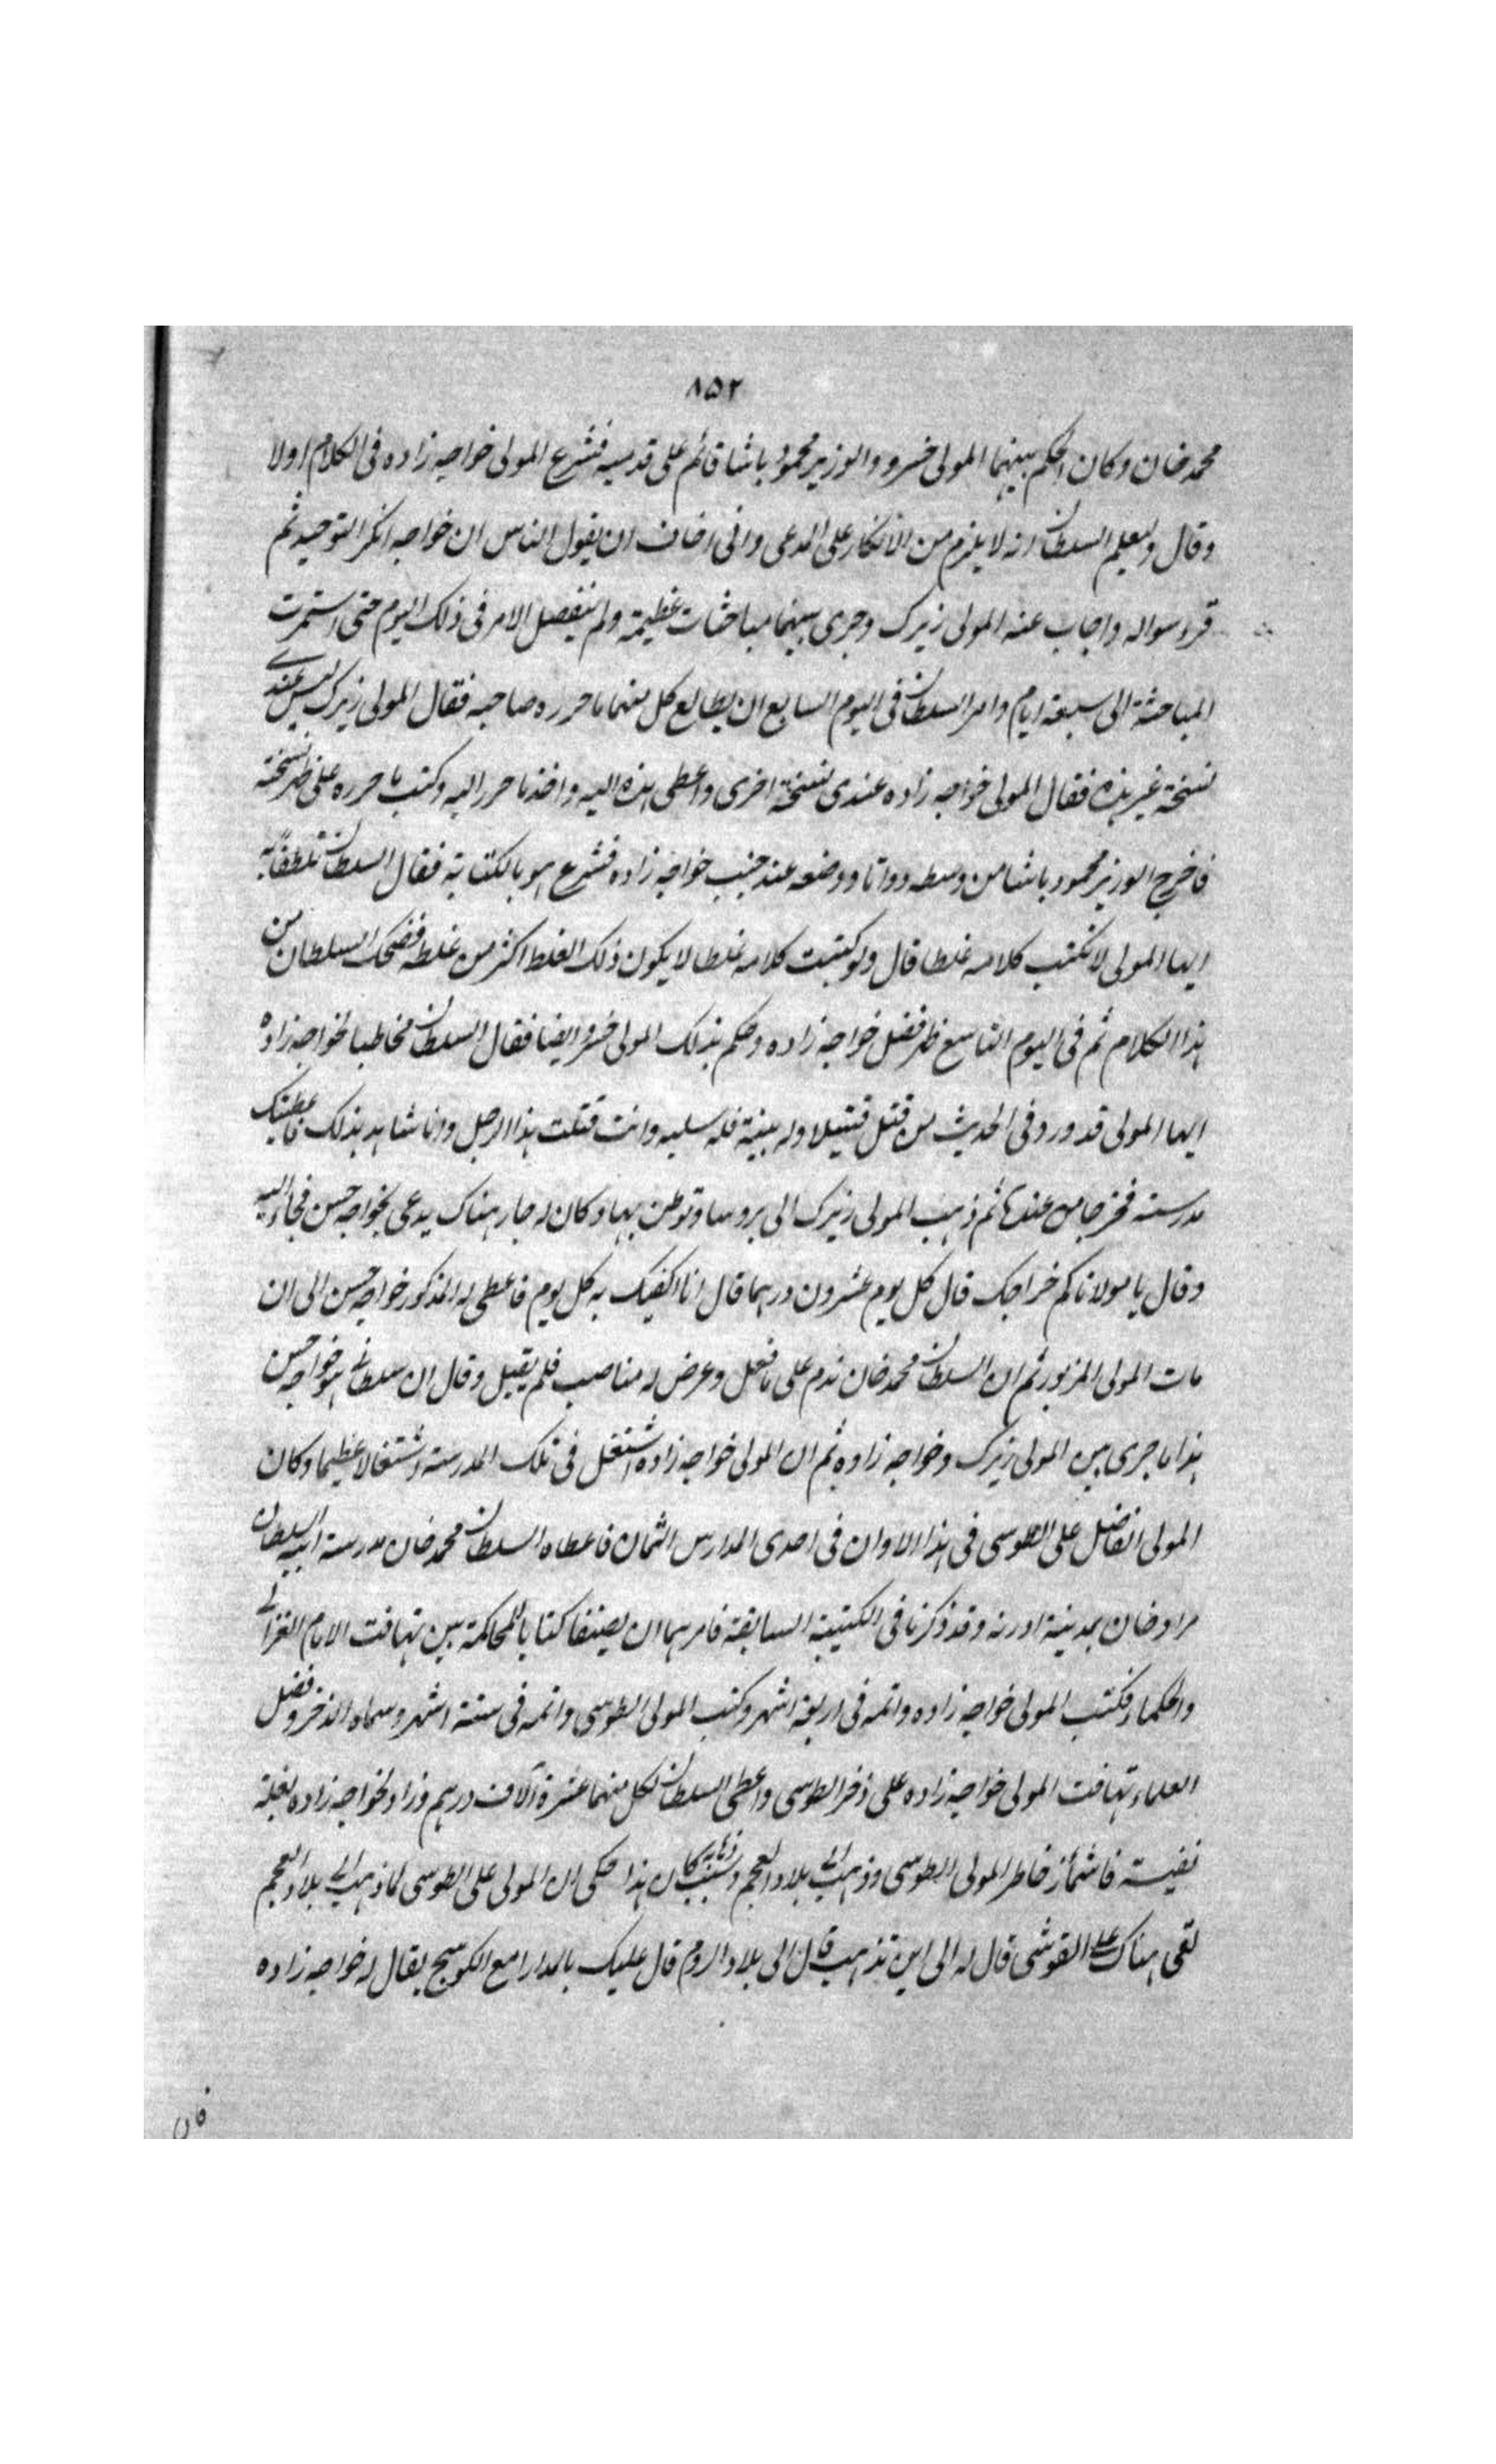 ٨٥٢
محمد خان وكان الحكم بينهما المولى خسرو والوزير محمود باشا قائم على قدميه فشرع المولى خواجه زاده فى الكلام اولا
وقال وليعلم السلطان انه لا يلزم من الانكار على المدعى وانى اخاف ان يقول الناس ان خواجه انكر التوحيد ثم
قرر سواله واجاب عنه المولى زيرك وجرى بينهما مباحثات عظيمة ولم ينفصل الامر فى ذلك اليوم حتى استمرت
المباحثة الى سبعة ايام وامر السلطان فى اليوم السابع ان يطالع كل منهما ما حرره صاحبه فقال المولى زيرك ليس عندى
نسخة غير هذه فقال المولى خواجه زاده عندى نسخة اخرى واعطى هذه اليه واخذ ما حرر اليه وكتب ما حرره على ظهر نسخة
فاخرج الوزير محمود باشا من وسطه دواتا ووضعه عند جنب خواجه زاده فشرع هو بالكتابة فقال السلطان تلطفا به
ايها المولى لا تكتب كلامه غلطا قال ولو كتبت كلامه غلطا لا يكون ذلك الغلط اكثر من غلطه فضحك السلطان من
هذا الكلام ثم فى اليوم التاسع ظهر فضل خواجه زاده وحكم بذلك المولى خسرو ايضا فقال السلطان مخاطبا لخواجه زاده
ايها المولى قد ورد فى الحديث من قتل قتيلا وله بينة فله سلبه وانت قتلت هذا الرجل وانا شاهد بذلك فاعطيتك
مدرسته فخرجا من عنده ثم ذهب المولى زيرك الى بروسا وتوطن بها وكان له جار هناك يدعى بخواجه حسن فجاء اليه
وقال يا مولانا كم خراجك قال كل يوم عشرون درهما قال انا اكفيك به كل يوم فاعطى له المذكور خواجه حسن الى ان
مات المولى المزبور ثم ان السلطان محمد خان ندم على ما فعل وعرض له مناصب فلم يقبل وقال ان سلطانى هو خواجه حسن
هذا ما جرى بين المولى زيرك وخواجه زاده ثم ان المولى خواجه زاده اشتغل فى تلك المدرسة اشتغالا عظيما وكان
المولى الفاضل على الطوسى فى هذا الاوان فى احدى المدارس الثمان فاعطاه السلطان محمد خان مدرسة ابيه السلطان
مراد خان بمدينة ادرنه وقد ذكرنا فى الكتيبة السابقة فامرهما ان يصنفا كتابا للمحاكمة بين تهافت الامام الغزالى
والحكماء فكتب المولى خواجه زاده واتمه فى اربعة اشهر وكتب المولى الطوسى واتمه فى ستة اشهر وسماه الذخر وفضل
العلماء تهافت المولى خواجه زاده على ذخر الطوسى واعطى السلطان لكل منهما عشرة آلاف درهم وزاد لخواجه زاده بغلة
نفيسة فاشمأز خاطر المولى الطوسى وذهب الى بلاد العجم وسبب ذهابه كان هذا حكى ان المولى على الطوسى لما ذهب الى بلاد العجم
لقى هناك على القوشى قال له الى اين تذهب قال الى بلاد الروم قال عليك بالمدارا مع الكوسج يقال له خواجه زاده